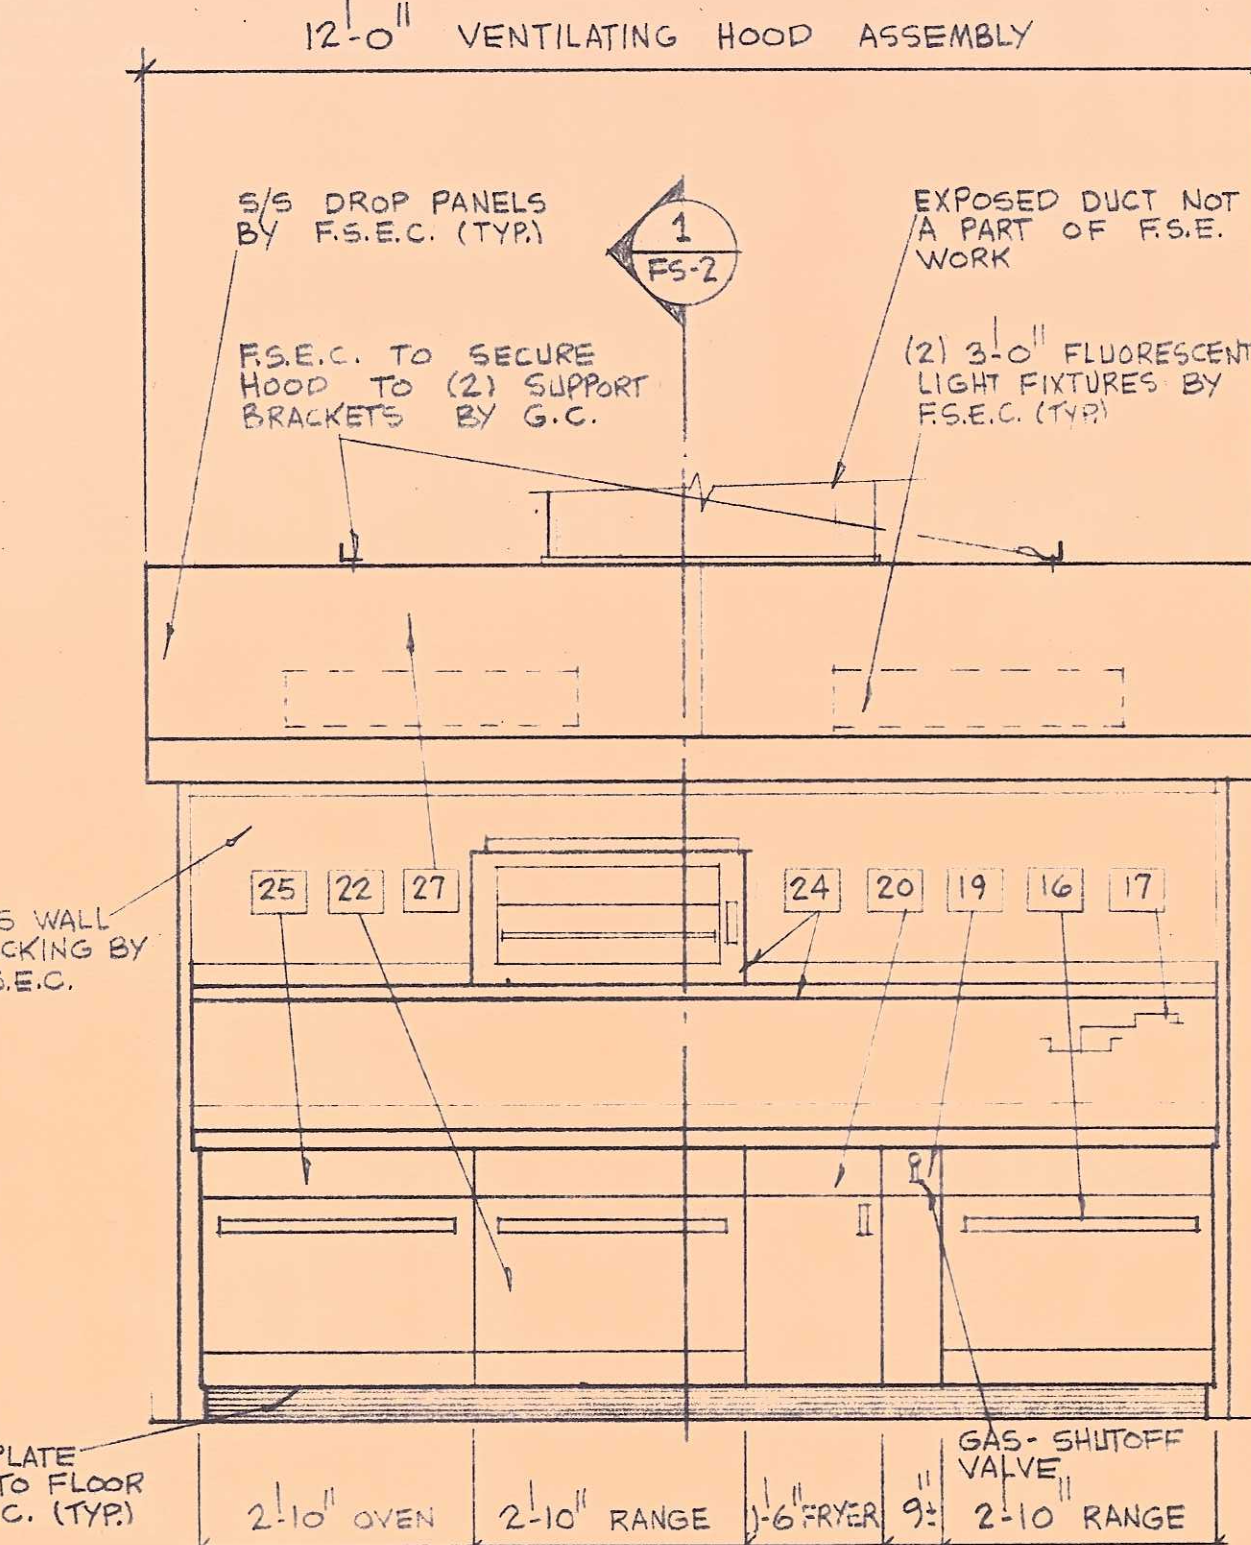 12'-0" VENTILATING HOOD ASSEMBLY
S/S DROP PANELS
BY F.S.E.C. (TYP.)
1
FS-2
EXPOSED DUCT NOT
A PART OF F.S.E.
WORK
F.S.E.C. TO SECURE
HOOD TO (2) SUPPORT
BRACKETS BY G.C.
(2) 3'-0" FLUORESCENT
LIGHT FIXTURES BY
F.S.E.C. (TYP)
25 22 27 24 20 19 16 17
S WALL
CKING BY
S.E.C.
PLATE
TO FLOOR
C. (TYP.)
GAS-SHUTOFF
VALVE
2'-10" OVEN 2'-10" RANGE 1'-6" FRYER 9"± 2'-10" RANGE